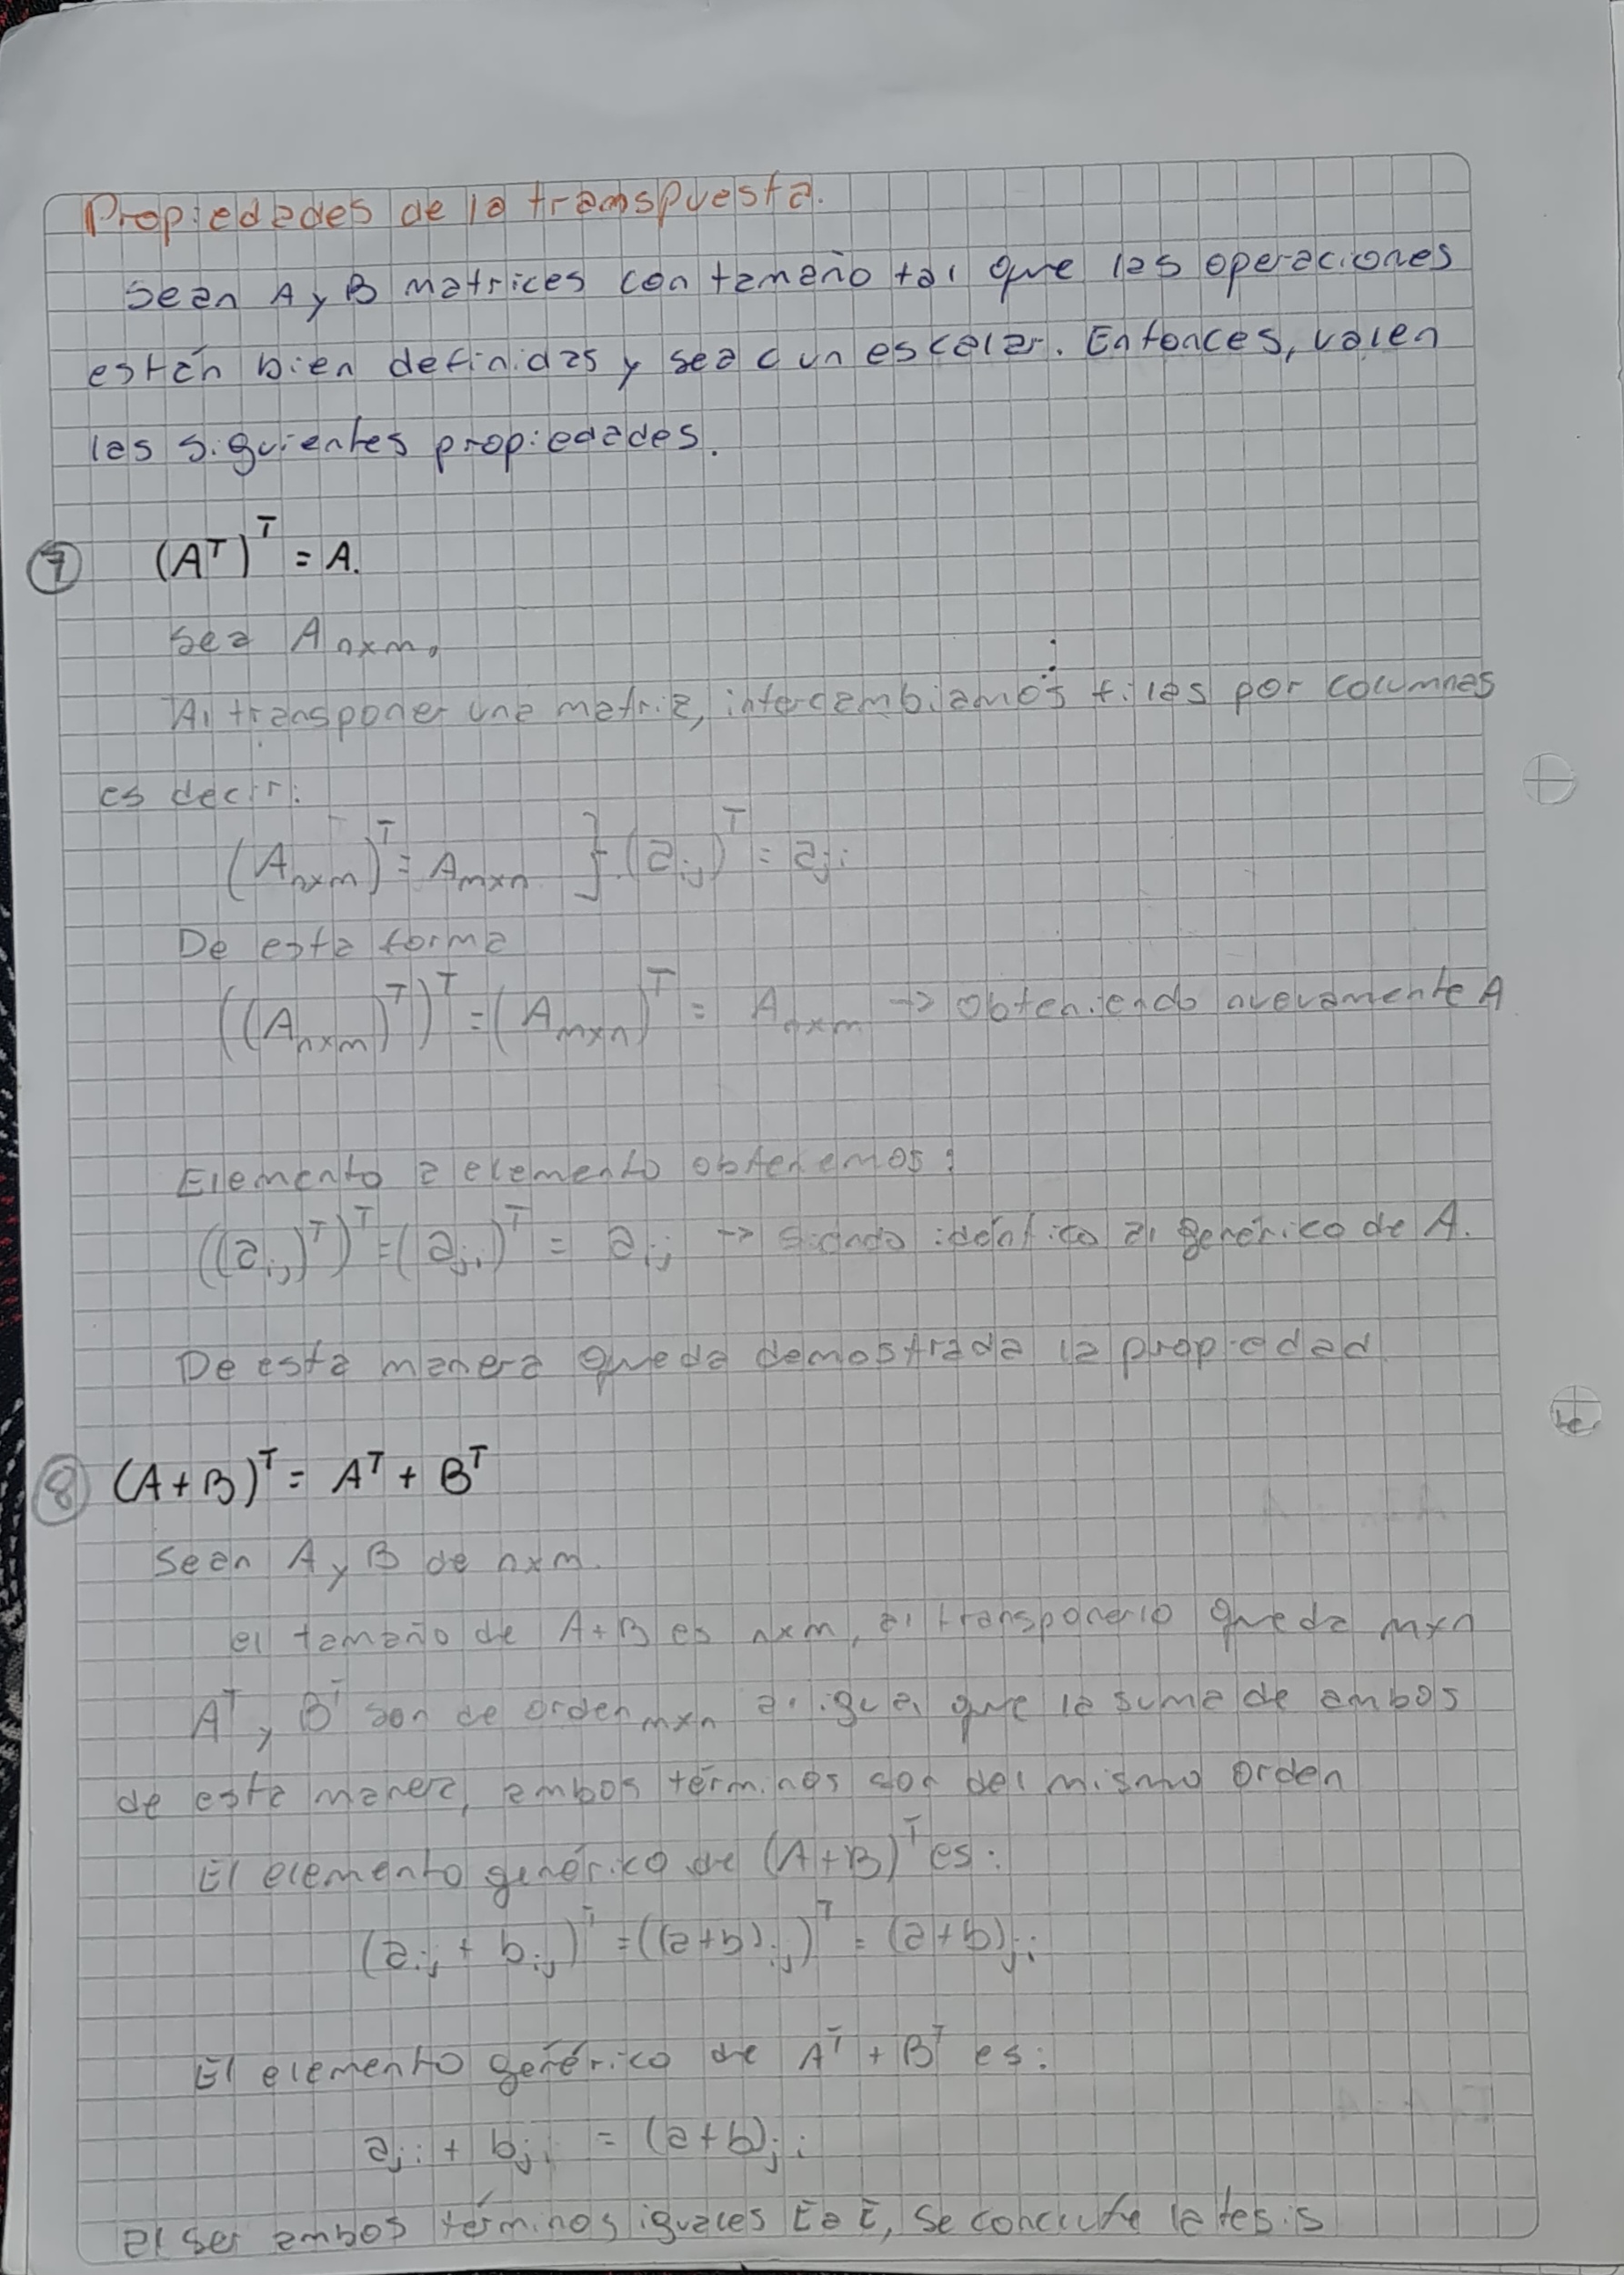 Propiedades de la transpuesta.
Sean A y B matrices con tamaño tal que las operaciones
están bien definidas y sea c un escalar. Entonces, valen
las siguientes propiedades.
⑦ (Aᵀ)ᵀ = A.
Sea Aₙₓₘ.
Al transponer una matriz, intercambiamos filas por columnas
es decir:
(Aₙₓₘ)ᵀ = Aₘₓₙ } (aᵢⱼ)ᵀ = aⱼᵢ
De esta forma
((Aₙₓₘ)ᵀ)ᵀ = (Aₘₓₙ)ᵀ = Aₙₓₘ → Obteniendo nuevamente A
Elemento a elemento obtenemos:
((aᵢⱼ)ᵀ)ᵀ = (aⱼᵢ)ᵀ = aᵢⱼ → Siendo idéntico al genérico de A.
De esta manera queda demostrada la propiedad
⑧ (A+B)ᵀ = Aᵀ + Bᵀ
Sean A y B de nxm.
el tamaño de A+B es nxm, al transponerlo queda mxn
Aᵀ y Bᵀ son de orden mxn al igual que la suma de ambos
de esta manera, ambos términos son del mismo orden
El elemento genérico de (A+B)ᵀ es:
(aᵢⱼ + bᵢⱼ)ᵀ = ((a+b)ᵢⱼ)ᵀ = (a+b)ⱼᵢ
El elemento genérico de Aᵀ + Bᵀ es:
aⱼᵢ + bⱼᵢ = (a+b)ⱼᵢ
al ser ambos términos iguales E a E, se concluye la tesis